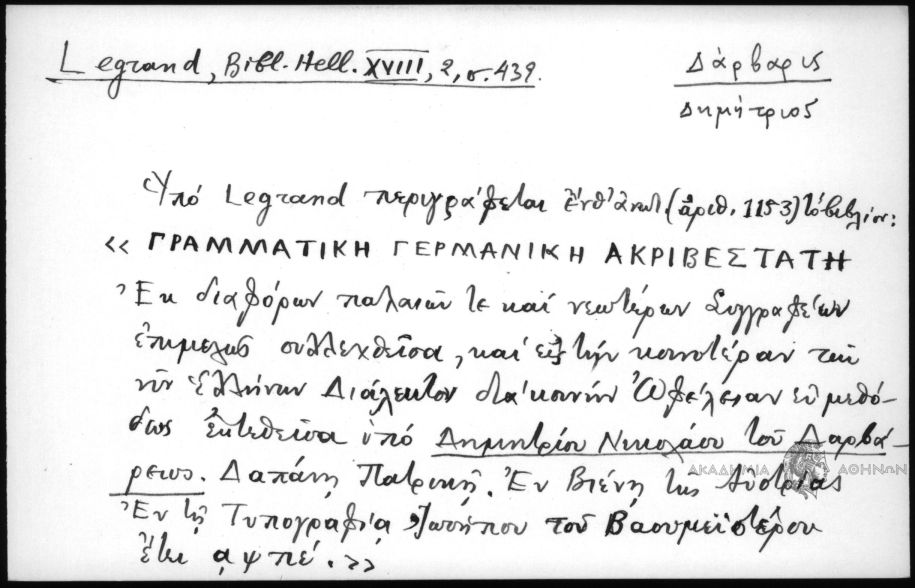 Legrand, Bibl. Hell. XVIII, 2, σ. 439.
Δάρβαρις
Δημήτριος
Ὑπό Legrand περιγράφεται ἐνθ' ἀνωτ. (ἀριθ. 1153) τό βιβλίον:
«ΓΡΑΜΜΑΤΙΚΗ ΓΕΡΜΑΝΙΚΗ ΑΚΡΙΒΕΣΤΑΤΗ
Ἐκ διαφόρων παλαιών τε καί νεωτέρων Συγγραφέων
ἐπιμελῶς συλλεχθεῖσα, καί εἰς τήν κοινοτέραν τῶν
νῦν Ἑλλήνων Διάλεκτον διά κοινήν Ὠφέλειαν εὐμεθό-
δως ἐκτεθεῖσα ὑπό Δημητρίου Νικολάου τοῦ Δαρβά-
ρεως. Δαπάνῃ Πατρικῇ. Ἐν Βιένῃ τῆς Αὐστρίας
ΑΚΑΔΗΜΙΑ ΑΘΗΝΩΝ
Ἐν τῇ Τυπογραφίᾳ Ἰωσήπου τοῦ Βαουμεϊστέρου
ἔτει αψπέ.»